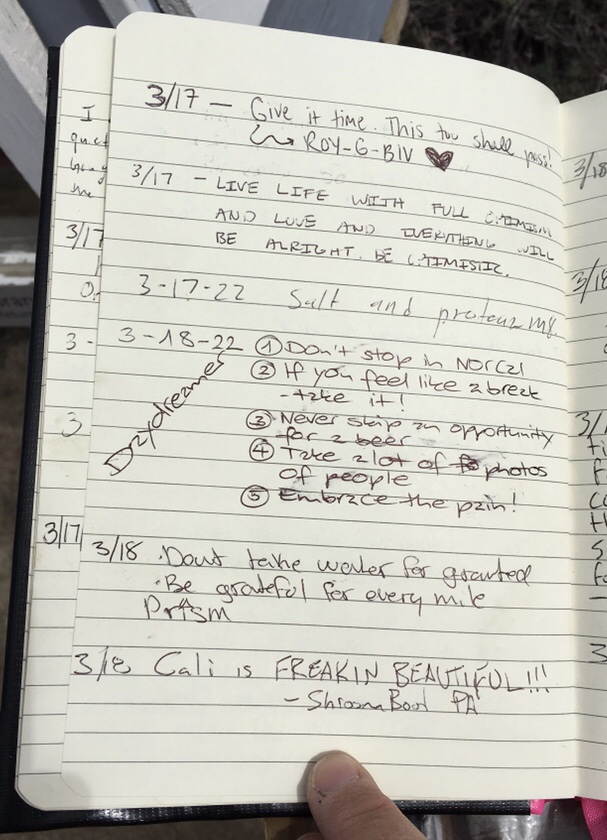 3/17 — Give it time. This too shall pass!
ROY-G-BIV ♥
3/17 - LIVE LIFE WITH FULL
AND LOVE AND EVERYTHING WILL
BE ALRIGHT. BE
3-17-22 Salt and
3-18-22 ① Don't stop in NORCal
② If you feel like a break
- take it!
③ Never skip an opportunity
for a beer
④ Take a lot of photos
of people
⑤ Embrace the pain!
Daydreamer
3/18 · Dont take water for granted
· Be grateful for every mile
Prism
3/18 Cali is FREAKIN BEAUTIFUL!!!
PA
I
the
3/17
3 -
3
3/17
3/18
3/18
3